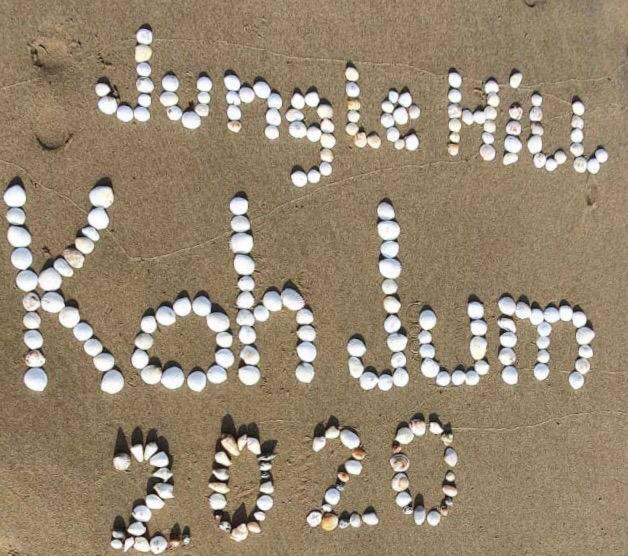 Jungle Hill
Koh Jum
2020